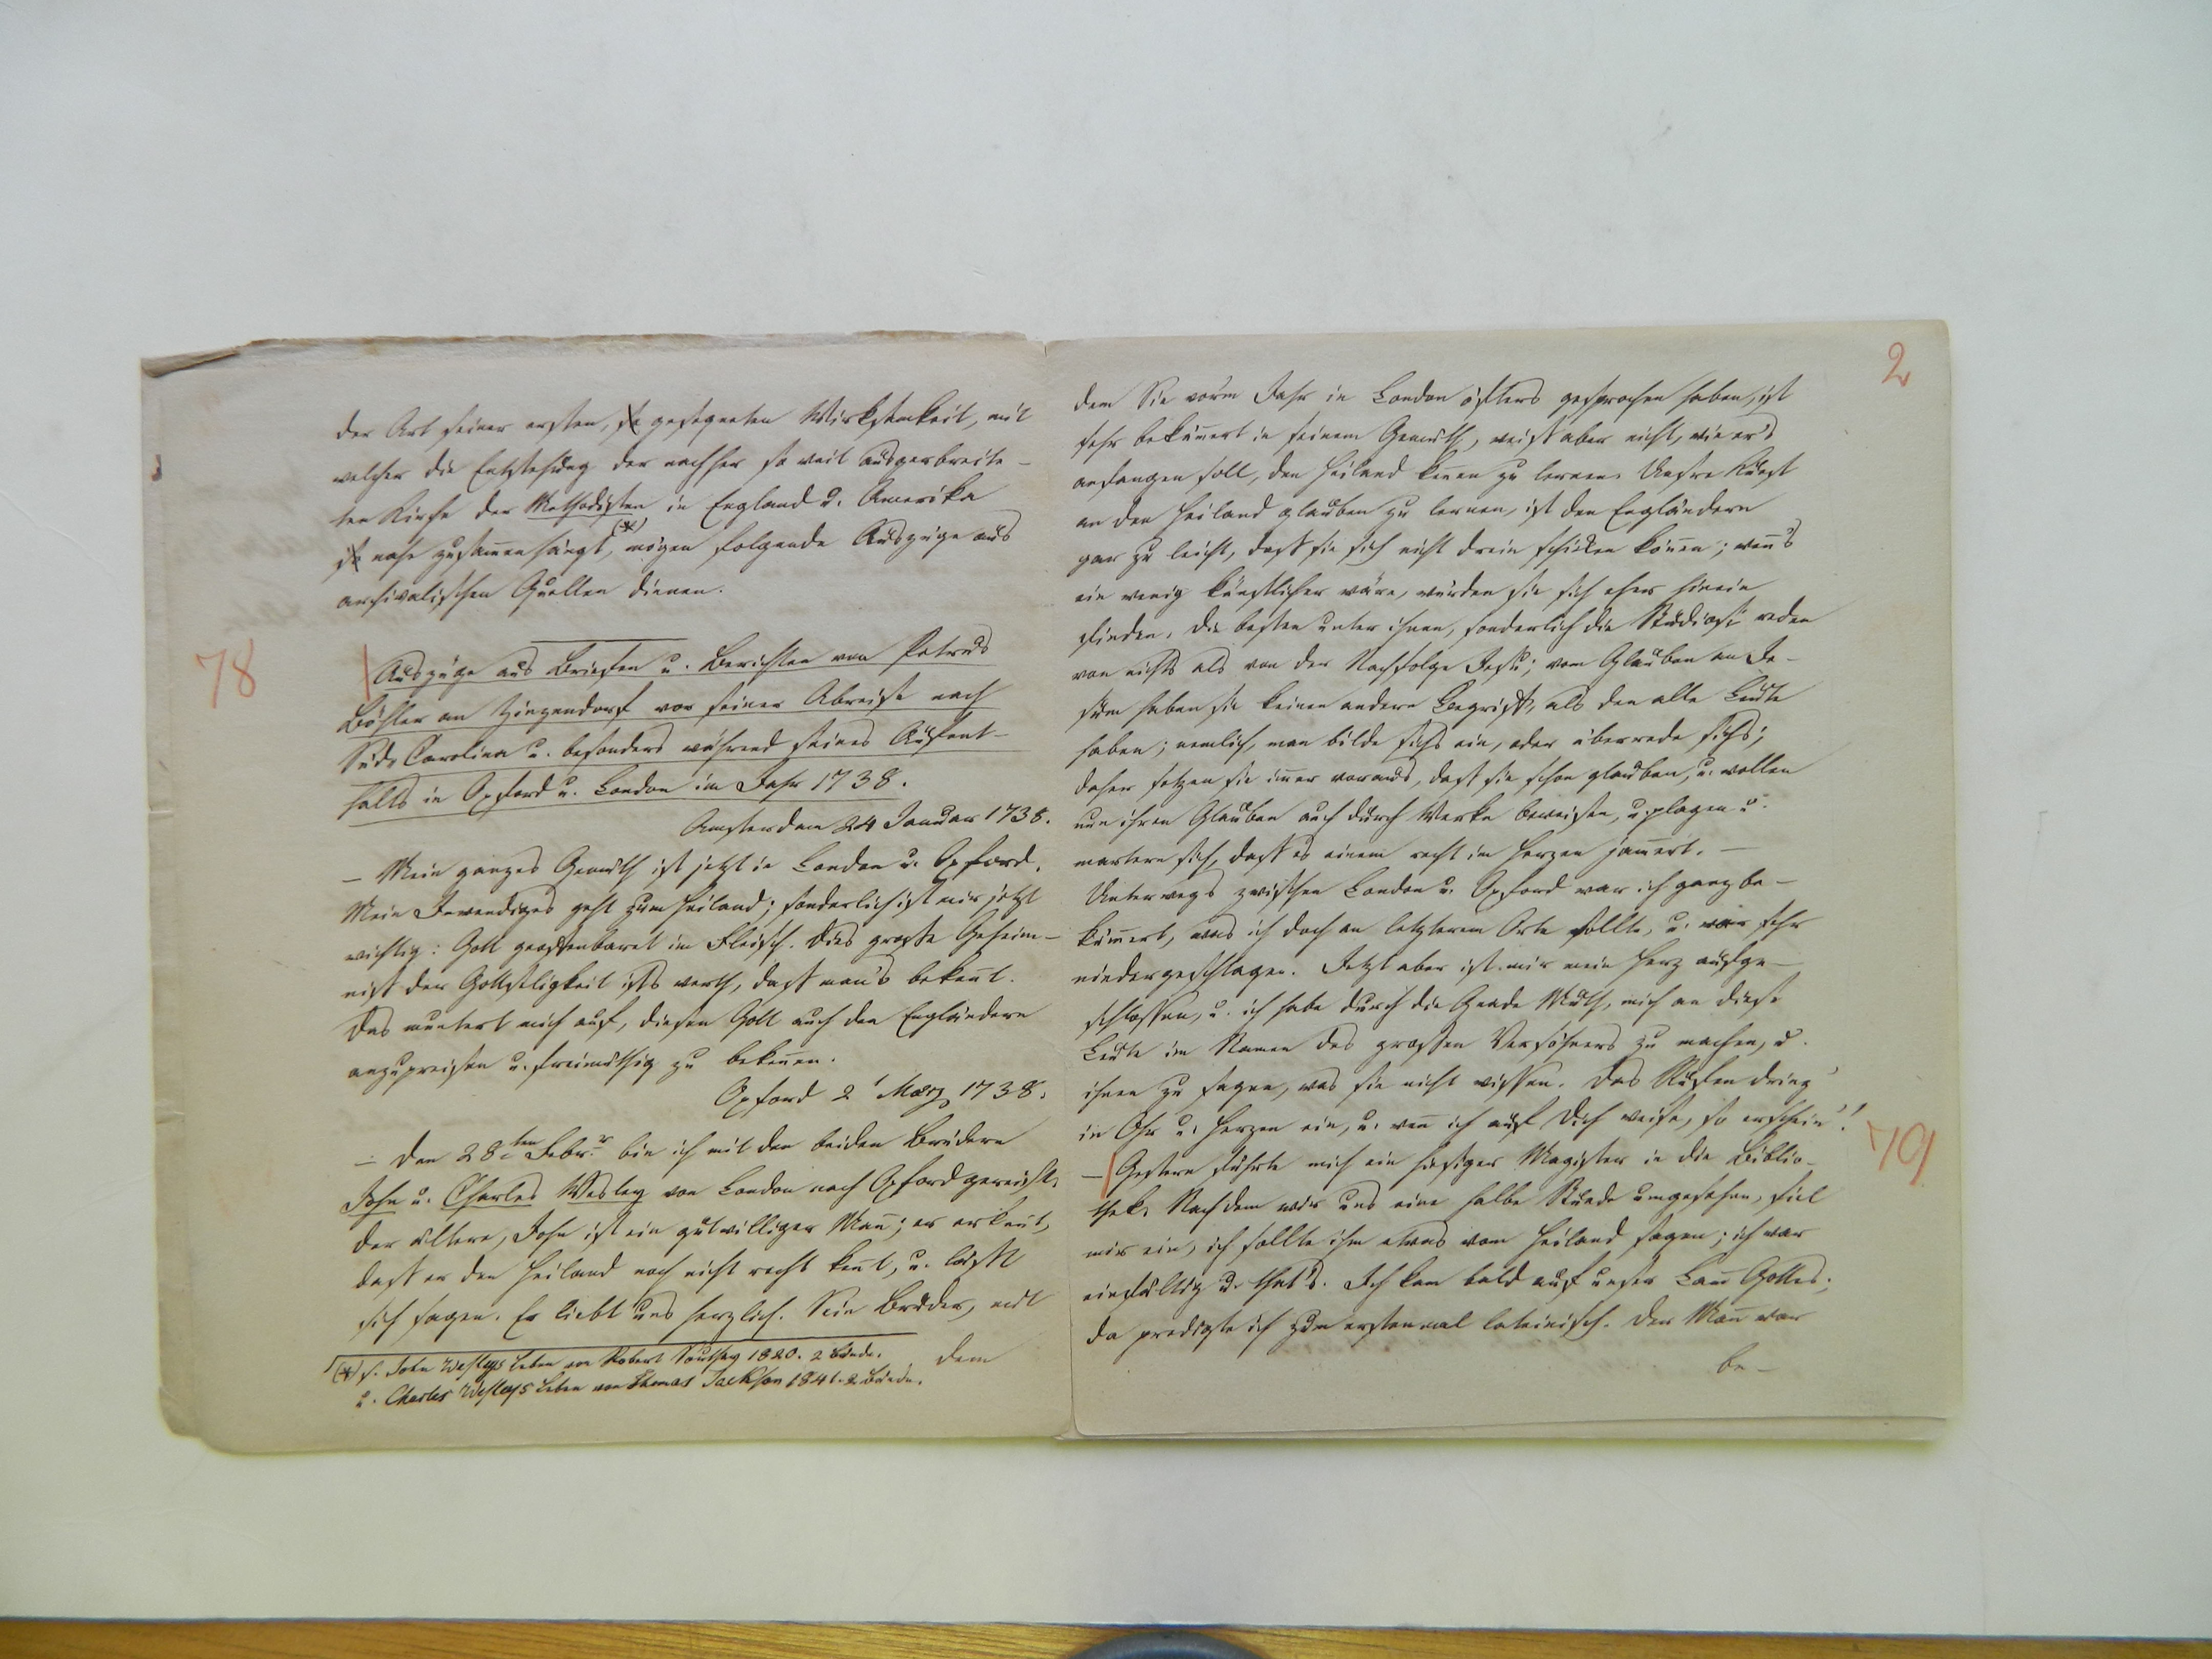 der Art seiner ersten, so gesegneten Wirksamkeit, mit
welcher die Entstehung der nachher so weit ausgebreite-
ten Kirche der Methodisten in England u. Amerika
so nahe zusam̅enhängt, (*) mögen folgende Auszüge aus
archivalischen Quellen dienen.
78
Auszüge aus Briefen u. Berichten von Petrus
Böhler an Zinzendorf vor seiner Abreise nach
Süd-Carolina u. besonders während seines Aufent-
halts in Oxford u. London im Jahr 1738.
Amsterdam 24 Januar 1738.
– Mein ganzes Gemüth ist jetzt in London u. Oxford.
Mein Inwendiges geht zum Heiland; sonderlich ist mir jetzt
wichtig: Gott geoffenbaret im Fleisch. Dies grosse Geheim-
niss der Gottseligkeit ists werth, dass man's beken̅t.
Das muntert mich auf, diesen Gott auch den Engländern
anzupreisen u. freimüthig zu beken̅en.
Oxford 2 März 1738.
– Den 28ten Febr. bin ich mit den beiden Brüdern
John u. Charles Wesley von London nach Oxford gereist.
Der ältere, John ist ein gutwilliger Man̅; er erken̅t,
dass er den Heiland noch nicht recht ken̅t, u. lässt
sich sagen. Er liebt uns herzlich. Sein Bruder, mit
dem
(*) s. John Wesleys Leben von Robert Southey 1820. 2 Bände.
u. Charles Wesleys Leben von Thomas Jackson 1841. 2 Bände.
2
dem Sie vorm Jahr in London öfters gesprochen haben, ist
sehr beküm̅ert in seinem Gemüth, weiss aber nicht, wie er's
anfangen soll, den Heiland ken̅en zu lernen. Unsre Kunst
an den Heiland glauben zu lernen, ist den Engländern
gar zu leicht, dass sie sich nicht drein schicken kön̅en; wen̅'s
ein wenig künstlicher wäre, würden sie sich eher hinein
finden. Die besten unter ihnen, sonderlich die Studiosi reden
von nichts als von der Nachfolge Jesu; vom Glauben an Je-
sum haben sie keinen andern Begriff, als den alle Leute
haben; nemlich, man bilde sichs ein, oder überrede sichs;
daher setzen sie im̅er voraus, dass sie schon glauben, u. wollen
nun ihren Glauben auch durch Werke beweisen, u. plagen u.
martern sich, dass es einem recht im Herzen jam̅ert. –
Unterwegs zwischen London u. Oxford war ich ganz be-
küm̅ert, was ich doch an letzterem Orte sollte, u. war sehr
niedergeschlagen. Jetzt aber ist mir mein Herz aufge-
schlossen, u. ich habe durch die Gnade Muth, mich an diese
Leute im Namen des grossen Versöhners zu machen, u.
ihnen zu sagen, was sie nicht wissen. Das Rufen dring'
in Ohr u. Herzen ein, u. wen̅ ich auf Dich weise, so erschein'!
79
– Gestern führte mich ein hiesiger Magister in die Biblio-
thek. Nachdem wir uns eine halbe Stunde umgesehen, fiel
mir ein, ich sollte ihm etwas vom Heiland sagen; ich war
einfältig u. that's. Ich kam bald auf unser Lam̅ Gottes;
da predigte ich zum erstenmal lateinisch. Der Man̅ war
be-